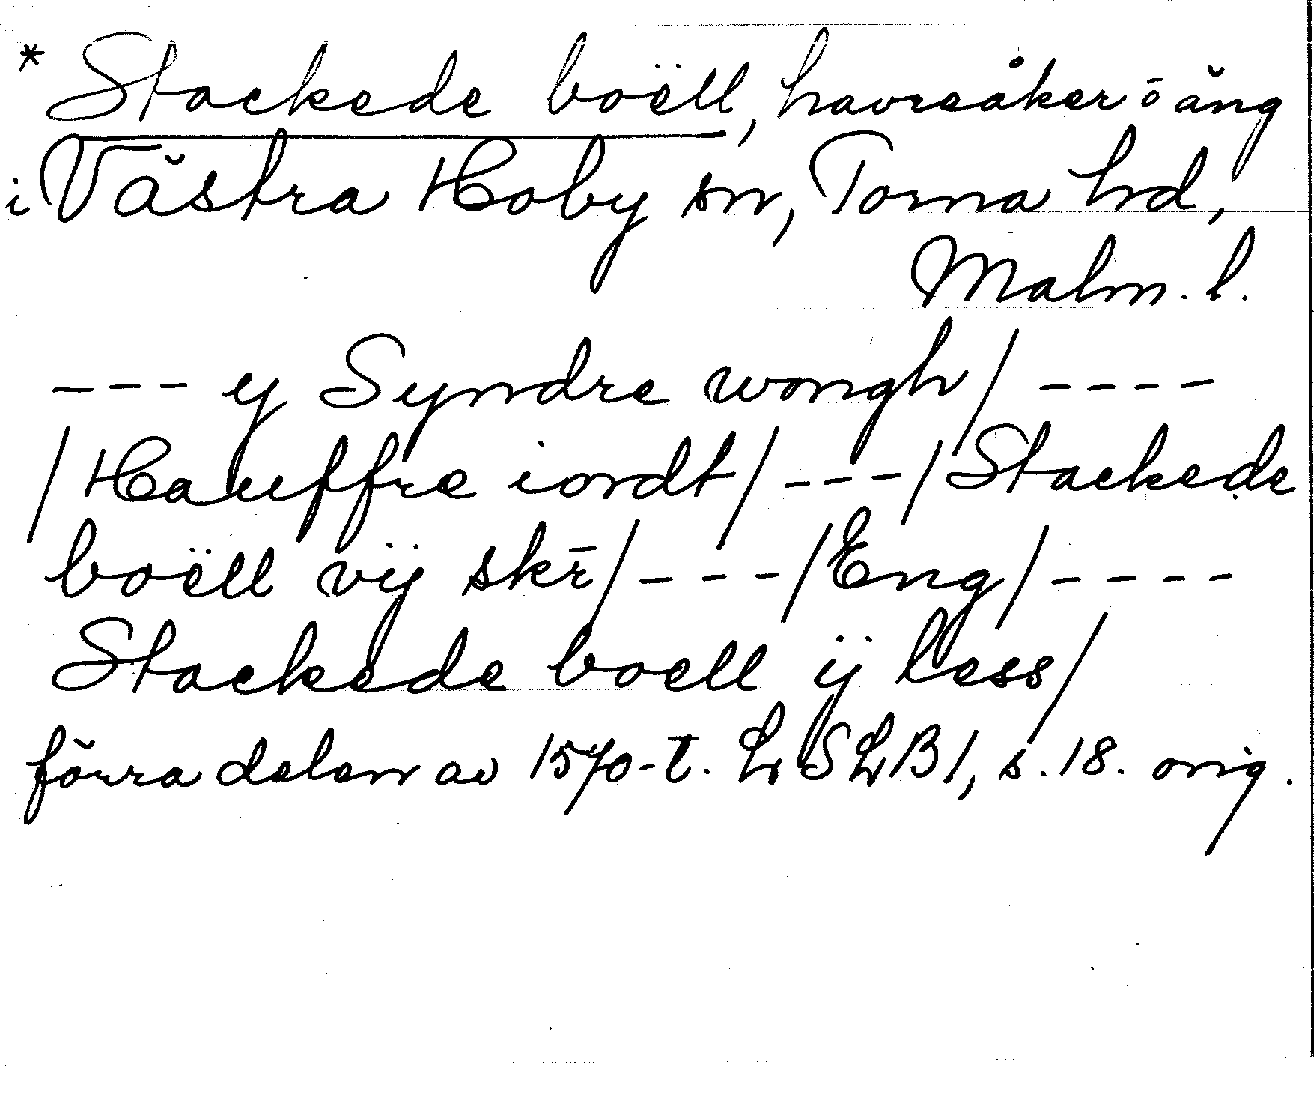 * Stackede boëll, havreåker o äng
i Västra Hoby sn, Torna hd,
Malm. l.
--- y Syndre wongh/ ----
/Hauffre iordt/ ---/Stackede
boëll vij skr̄/---/Eng/----
Stackede boell ij less/
förra delen av 1570-t. LSLB1, s. 18. orig.